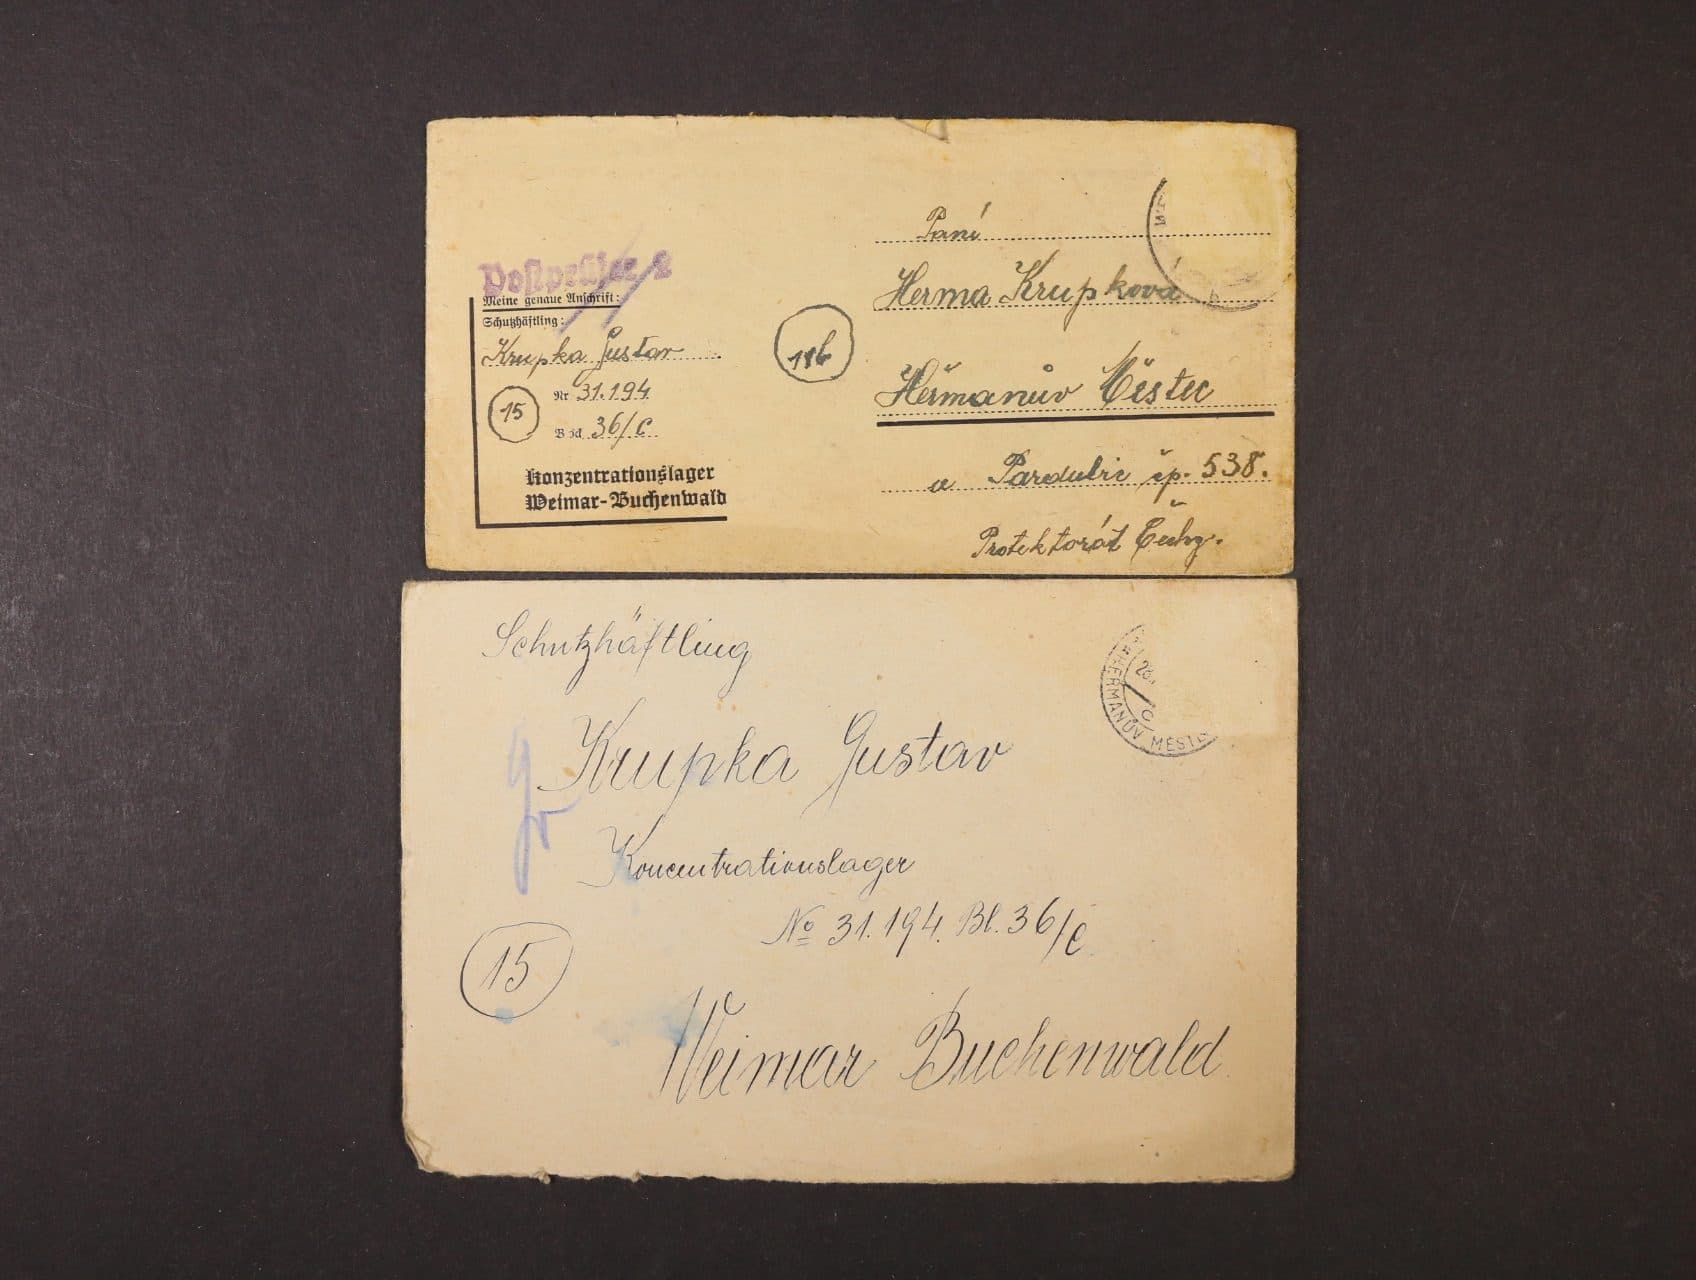 Postprüfer
Meine genaue Anschrift:
Schutzhäftling:
Krupka Gustav
Nr 31.194
15
36/C
Konzentrationslager
Weimar-Buchenwald
Paní
Herma Krupková
Heřmanův Městec
u Pardubic čp. 538.
Protektorát Čechy.
Schutzhäftling
Krupka Gustav
Koncentrationslager
No 31.194. Bl. 36/c
15
Weimar Buchenwald
HEŘMANŮV MĚSTE